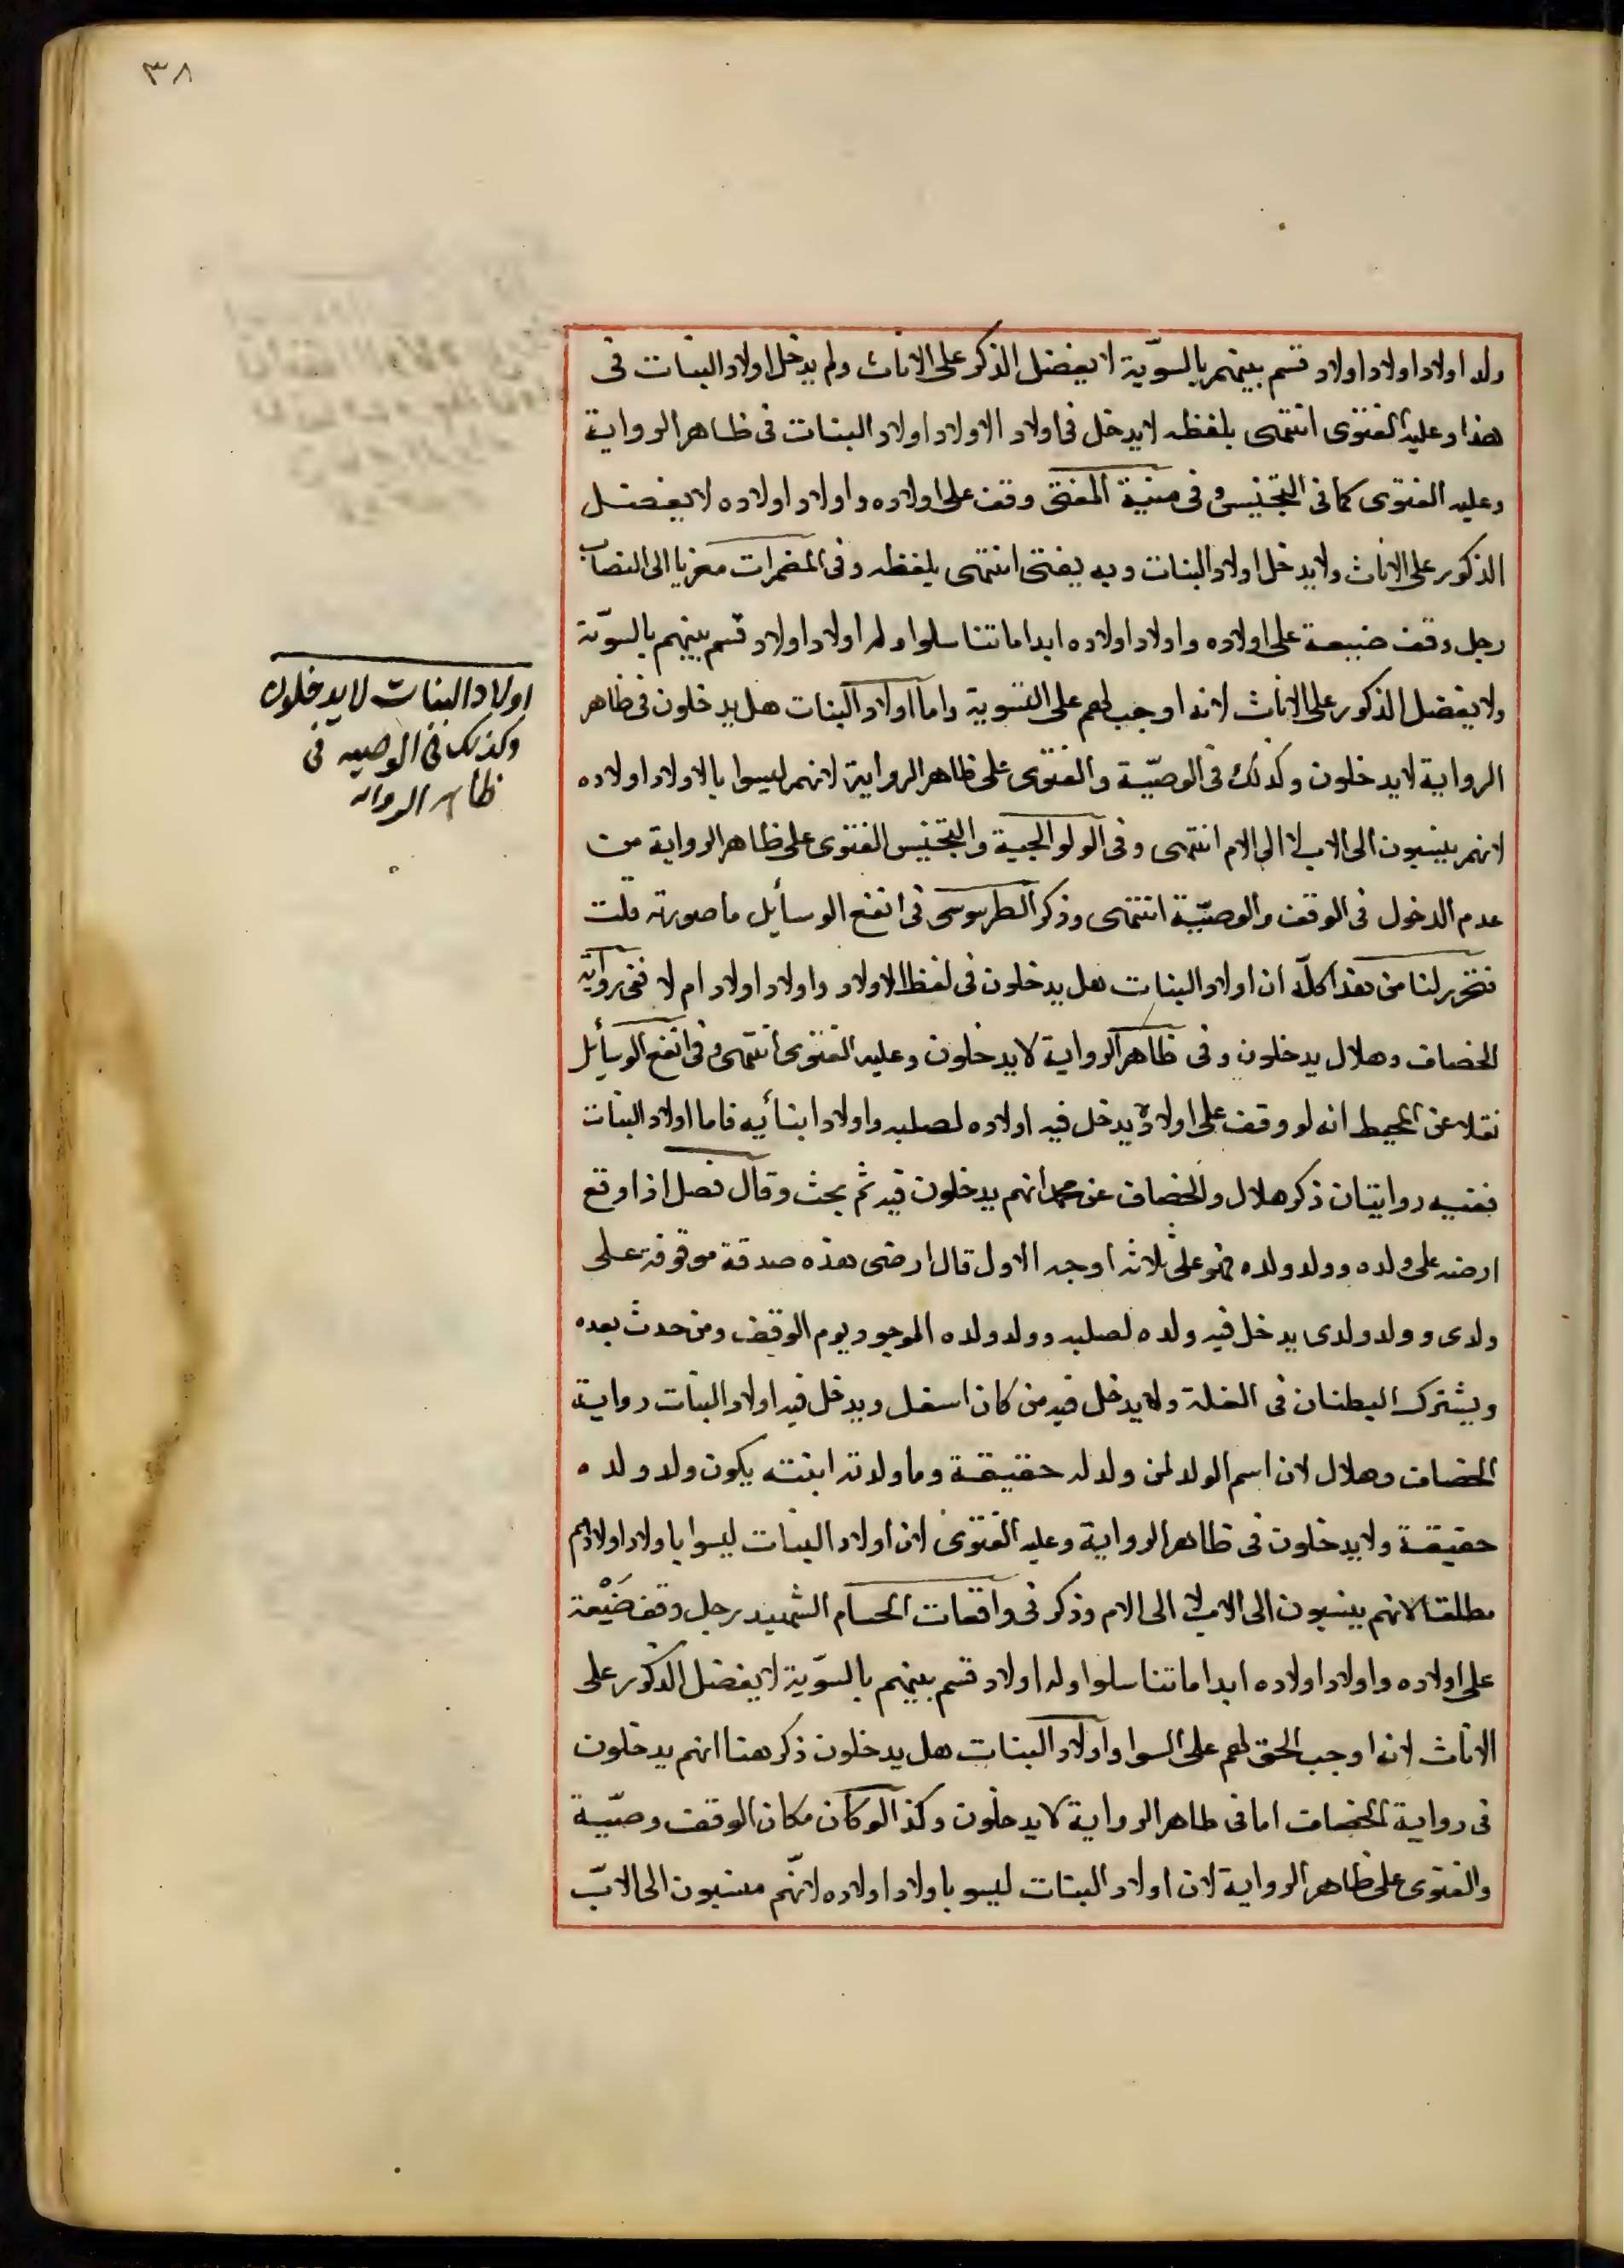 ٣٨
وله اولاد اولاد اولاد قسم بينهم بالسوّية لا يفضل الذكر على الاناث ولم يدخل اولاد البنات فى
هذا وعليه الفتوى انتهى بلفظه لا يدخل فى اولاد الاولاد اولاد البنات فى ظاهر الرواية
وعليه الفتوى كما فى التجنيس وفى منية المفتى وقف على اولاده واولاد اولاده لا يفضل
الذكور على الاناث ولا يدخل اولاد البنات وبه يفتى انتهى بلفظه وفى المضمرات معزيا الى النصاب
رجل وقف ضيعة على اولاده واولاد اولاده ابدا ما تناسلوا وله اولاد اولاد قسم بينهم بالسوّية
ولا يفضل الذكور على الاناث لانه اوجب لهم على التسوية واما اولاد البنات هل يدخلون فى ظاهر
الرواية لا يدخلون وكذلك فى الوصيّة والفتوى على ظاهر الرواية لانهم ليسوا بالاولاد اولاده
لانهم ينسبون الى الاب لا الى الام انتهى وفى الولوالجية والتجنيس الفتوى على ظاهر الرواية من
عدم الدخول فى الوقف والوصيّة انتهى وذكر الطرسوسى فى انفع الوسأيل ما صورته قلت
فتحرر لنا من هذا كلّه ان اولاد البنات هل يدخلون فى لفظ الاولاد واولاد اولاد ام لا ففى رواية
الخصاف وهلال يدخلون وفى ظاهر الرواية لا يدخلون وعليه الفتوى انتهى وفى انفع الوسأيل
نقلا عن المحيط انه لو وقف على اولاده يدخل فيه اولاده لصلبه واولاد ابنأيه فاما اولاد البنات
ففيه روايتان ذكر هلال والخصاف عن محمد انهم يدخلون فيه ثم بحث وقال فصل اذا وقع
ارضه على ولده وولد ولده فهو على ثلاثه اوجه الاول قال ارضى هذه صدقة موقوفة على
ولدى وولد ولدى يدخل فيه ولده لصلبه وولد ولده الموجود يوم الوقف ومن حدث بعده
ويشترك البطنان فى الغلة ولا يدخل فيه من كان اسفل ويدخل فيه اولاد البنات رواية
الخصاف وهلال لان اسم الولد لمن ولد له حقيقة وما ولدته ابنته يكون ولد ولده
حقيقة ولا يدخلون فى ظاهر الرواية وعليه الفتوى لان اولاد البنات ليسوا باولاد اولادهم
مطلقا لانهم ينسبون الى الاب لا الى الام وذكر فى واقعات الحسام الشهيد رجل وقف ضَيْعة
على اولاده واولاد اولاده ابدا ما تناسلوا وله اولاد قسم بينهم بالسوّية لا يفضل الذكور على
الاناث لانه اوجب الحق لهم على السوا واولاد البنات هل يدخلون ذكر هنا انهم يدخلون
فى رواية الخصاف اما فى ظاهر الرواية لا يدخلون وكذا لو كان مكان الوقف وصيّة
والفتوى على ظاهر الرواية لان اولاد البنات ليسو باولاد اولاده لانّهم منسبون الى الابّ
اولاد البنات لا يدخلون
وكذلك فى الوصيه فى
ظاهر الروايه